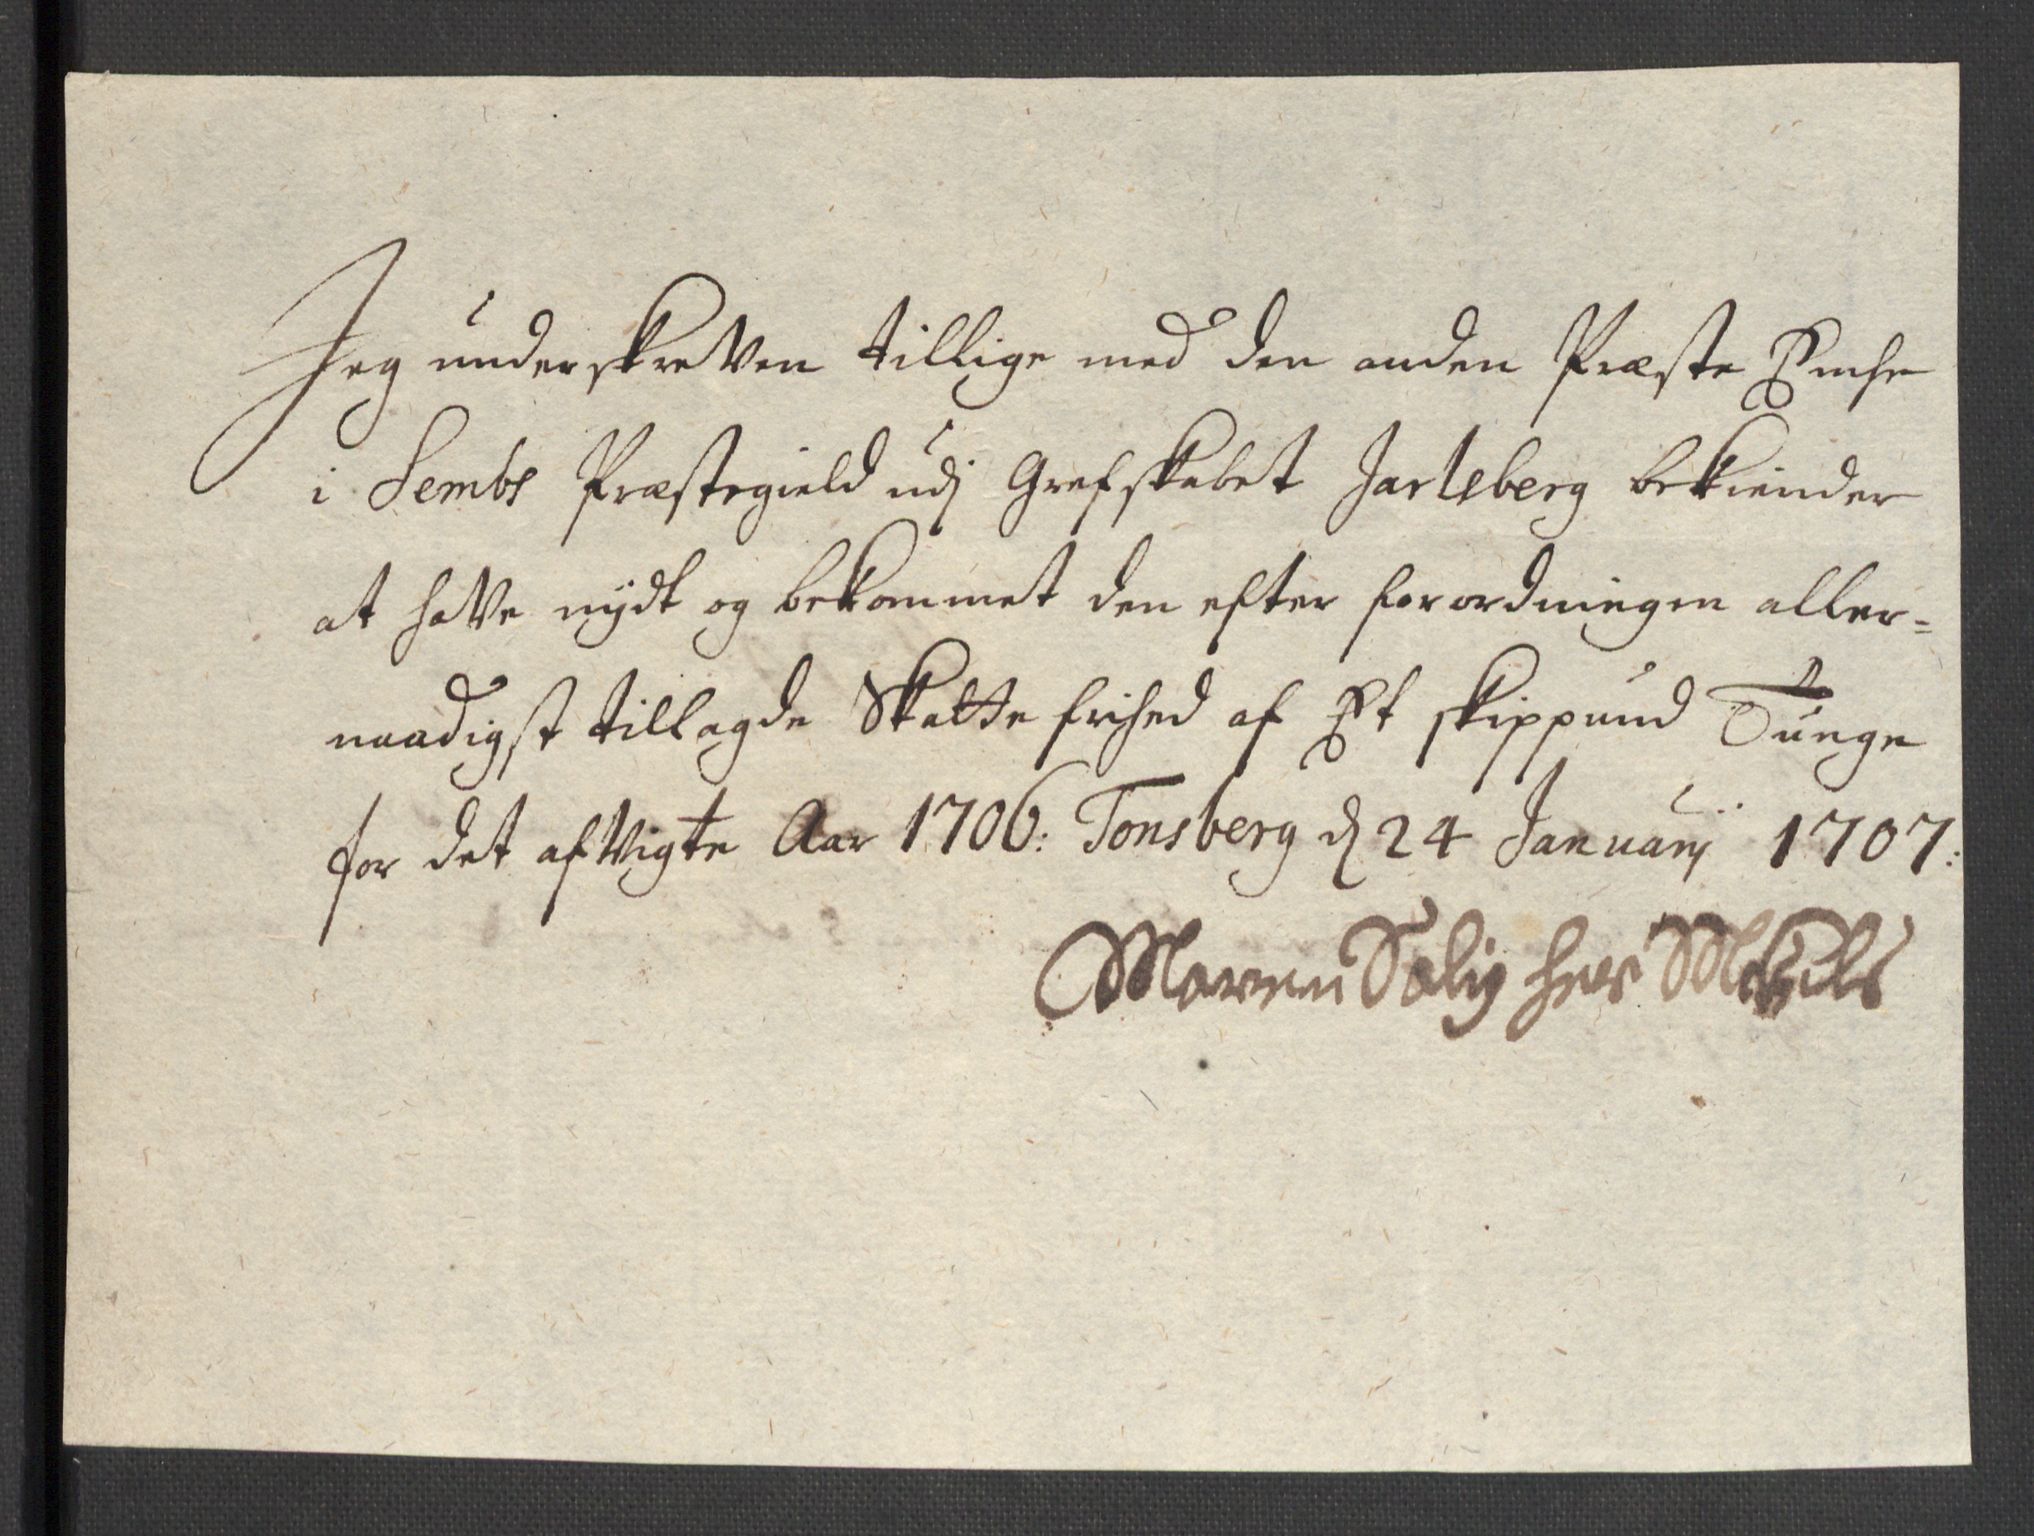 Jeg underskreVen tillige med den anden Præste Enche
i Sembs Præstegield udj Grefskabet Jarlsberg bekiender
at haVe nydt og bekommet den efter forordningen aller=
naadigst tillagde Skatte frihed af Et skippund Tunge
for det afVigte Aar 1706: Tonsberg d 24 Januarij 1707:
Maren Salig her